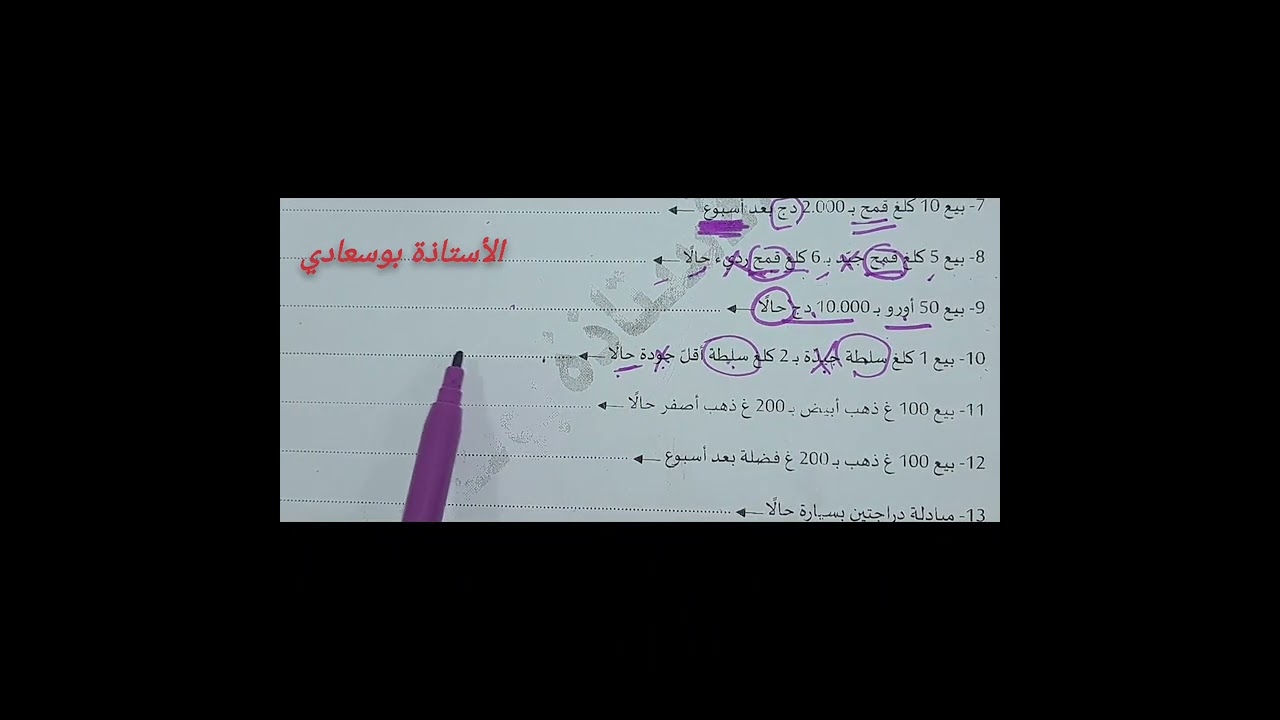 7- بيع 10 كلغ قمح بـ 2.000 دج بعد أسبوع
8- بيع 5 كلغ قمح جيد بـ 6 كلغ قمح رديء حالًا
الأستاذة بوسعادي
9- بيع 50 أورو بـ 10.000 دج حالًا
10- بيع 1 كلغ سلطة جيدة بـ 2 كلغ سلطة أقل جودة حالًا
11- بيع 100 غ ذهب أبيض بـ 200 غ ذهب أصفر حالًا
12- بيع 100 غ ذهب بـ 200 غ فضلة بعد أسبوع
13- مبادلة دراجتين بسيارة حالًا